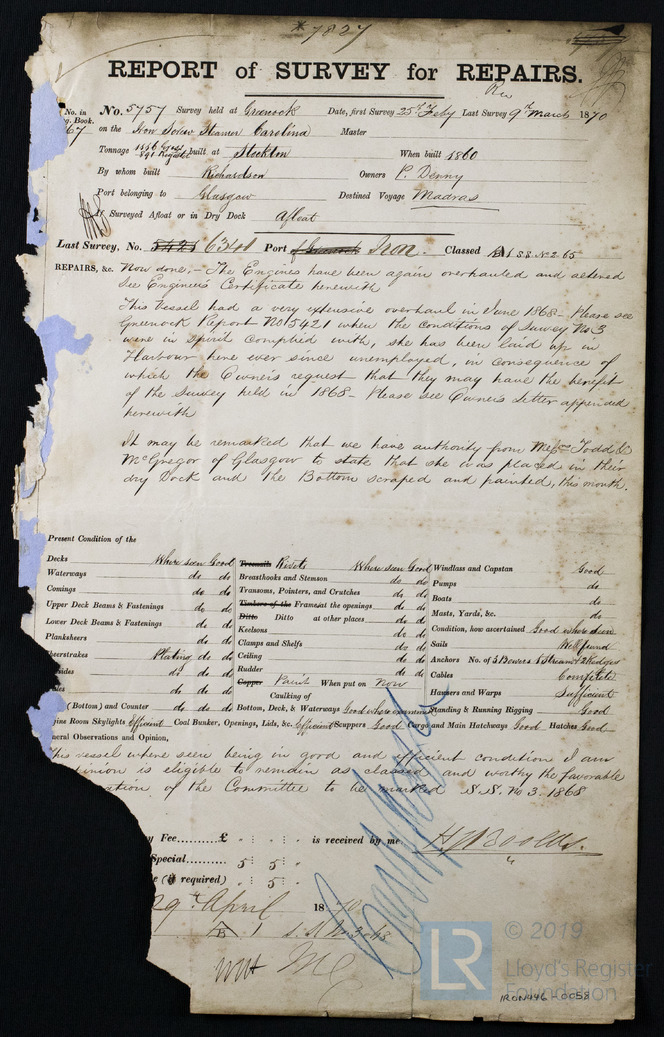 * 7827
REPORT of SURVEY for REPAIRS.
Rec
No. in
g. Book.
67
No. 5757 Survey held at Greenock Date, first Survey 25th Feby Last Survey 9th March 1870
on the Iron Screw Steamer Carolina Master
Tonnage 1156 Gross 891 Register built at Stockton When built 1860
By whom built Richardson Owners P. Denny
Port belonging to Glasgow Destined Voyage Madras
If Surveyed Afloat or in Dry Dock Afloat
Last Survey, No. 5421 6341 Port of Greenock Iron. Classed A1 S.S. No 2. 65
REPAIRS, &c. Now done. – The Engines have been again overhauled and altered
See Engineers Certificate herewith
This Vessel had a very extensive overhaul in June 1868 – Please see
Greenock Report No 5421 when the conditions of Survey No 3
were in spirit complied with, she has been laid up in
Harbour here ever since unemployed, in consequence of
which the Owners request that they may have the benefit
of the Survey held in 1868 – Please see Owners Letter appended
herewith
It may be remarked that we have authority from Messrs Todd &
McGregor of Glasgow to state that she was placed in their
dry Dock and the Bottom scraped and painted, this month.
Present Condition of the
Decks Where seen Good Treenails Rivets Where seen Good Windlass and Capstan Good
Waterways do do Breasthooks and Stemson do do Pumps do
Comings do do Transoms, Pointers, and Crutches do do Boats do
Upper Deck Beams & Fastenings do do Timbers of the Frames at the openings do do Masts, Yards, &c. do
Lower Deck Beams & Fastenings do do Ditto Ditto at other places do do Condition, how ascertained Good where seen
Planksheers do do Keelsons do do Sails Well found
heerstrakes Plating do do Clamps and Shelfs do do Anchors No. of 3 Bowers 1 Stream 2 Kedges
sides do do Ceiling do do Cables Complete
les do do Rudder do do Hawsers and Warps Sufficient
(Bottom) and Counter do do Copper Paint When put on Now Standing & Running Rigging Good
Caulking of
Bottom, Deck, & Waterways Good where seen
gine Room Skylights Efficient Coal Bunker, Openings, Lids, &c. Efficient Scuppers Good Cargo and Main Hatchways Good Hatches Good
neral Observations and Opinion,
This vessel where seen being in good and efficient condition I am
inion is eligible to remain as classed and worthy the favorable
ation of the Committee to be marked S.S. No 3. 1868
y Fee.........£ " : " : " is received by me,
Special...... 5 : 5 : "
e (if required) " : 5 : "
29th April 1870
A 1 S.S. No 3 68
© 2019
LR
Lloyd's Register
Foundation
IRON446-0058